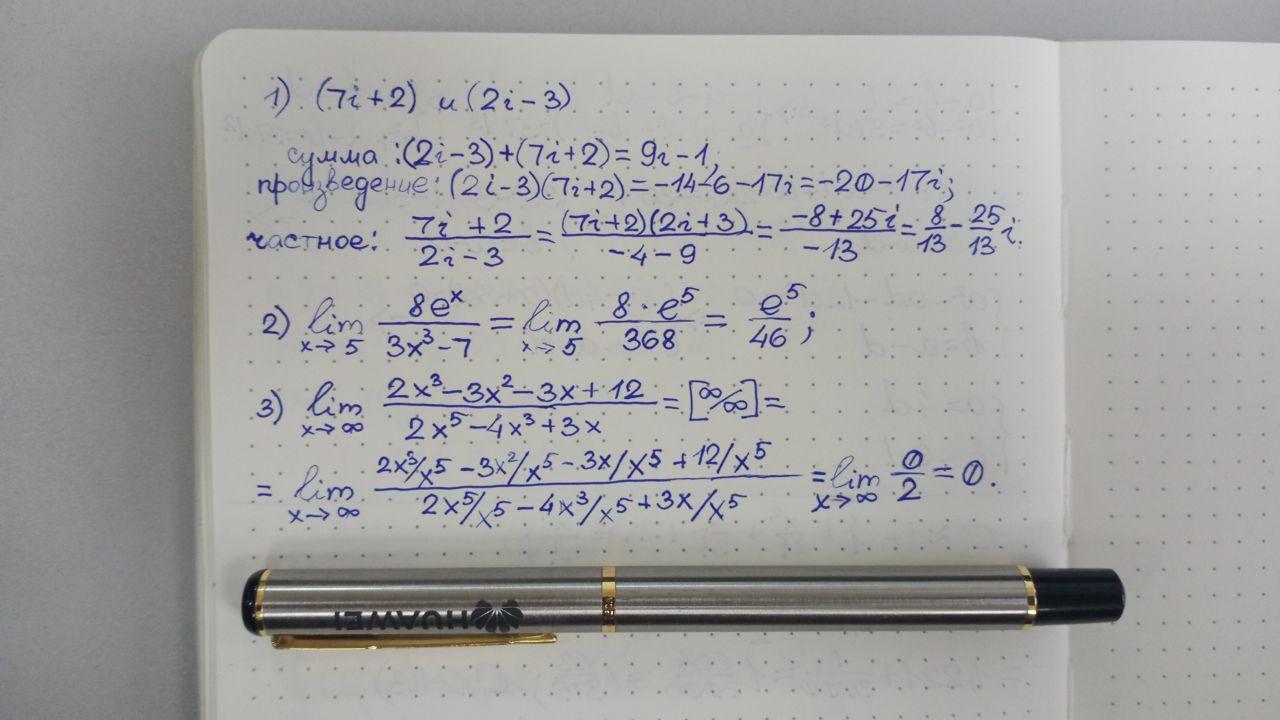 1) (7i+2) и (2i-3)
сумма: (2i-3)+(7i+2)=9i-1,
произведение: (2i-3)(7i+2)=-14-6-17i=-20-17i;
частное: (7i+2)/(2i-3) = ((7i+2)(2i+3))/(-4-9) = (-8+25i)/(-13) = 8/13 - 25/13 i.
2) lim x→5 8e^x/(3x³-7) = lim x→5 (8·e⁵)/368 = e⁵/46;
3) lim x→∞ (2x³-3x²-3x+12)/(2x⁵-4x³+3x) = [∞/∞] =
= lim x→∞ (2x³/x⁵-3x²/x⁵-3x/x⁵+12/x⁵)/(2x⁵/x⁵-4x³/x⁵+3x/x⁵) = lim x→∞ 0/2 = 0.
HUAWEI